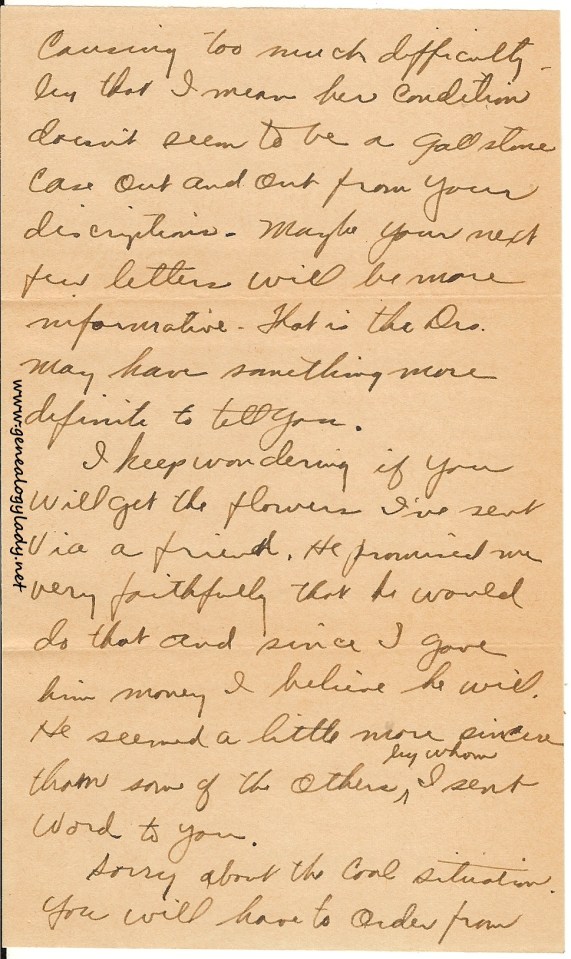 causing too much difficulty -
by that I mean her condition
doesn't seem to be a gall stone
case out and out from your
discriptions. Maybe your next
few letters will be more
informative - That is the Drs.
may have something more
definite to tell you.
I keep wondering if you
will get the flowers I've sent
via a friend. He promised me
very faithfully that he would
do that and since I gave
him money I believe he will.
He seemed a little more sincere
than some of the others, by whom I sent
word to you.
Sorry about the coal situation.
You will have to order from
www.genealogylady.net